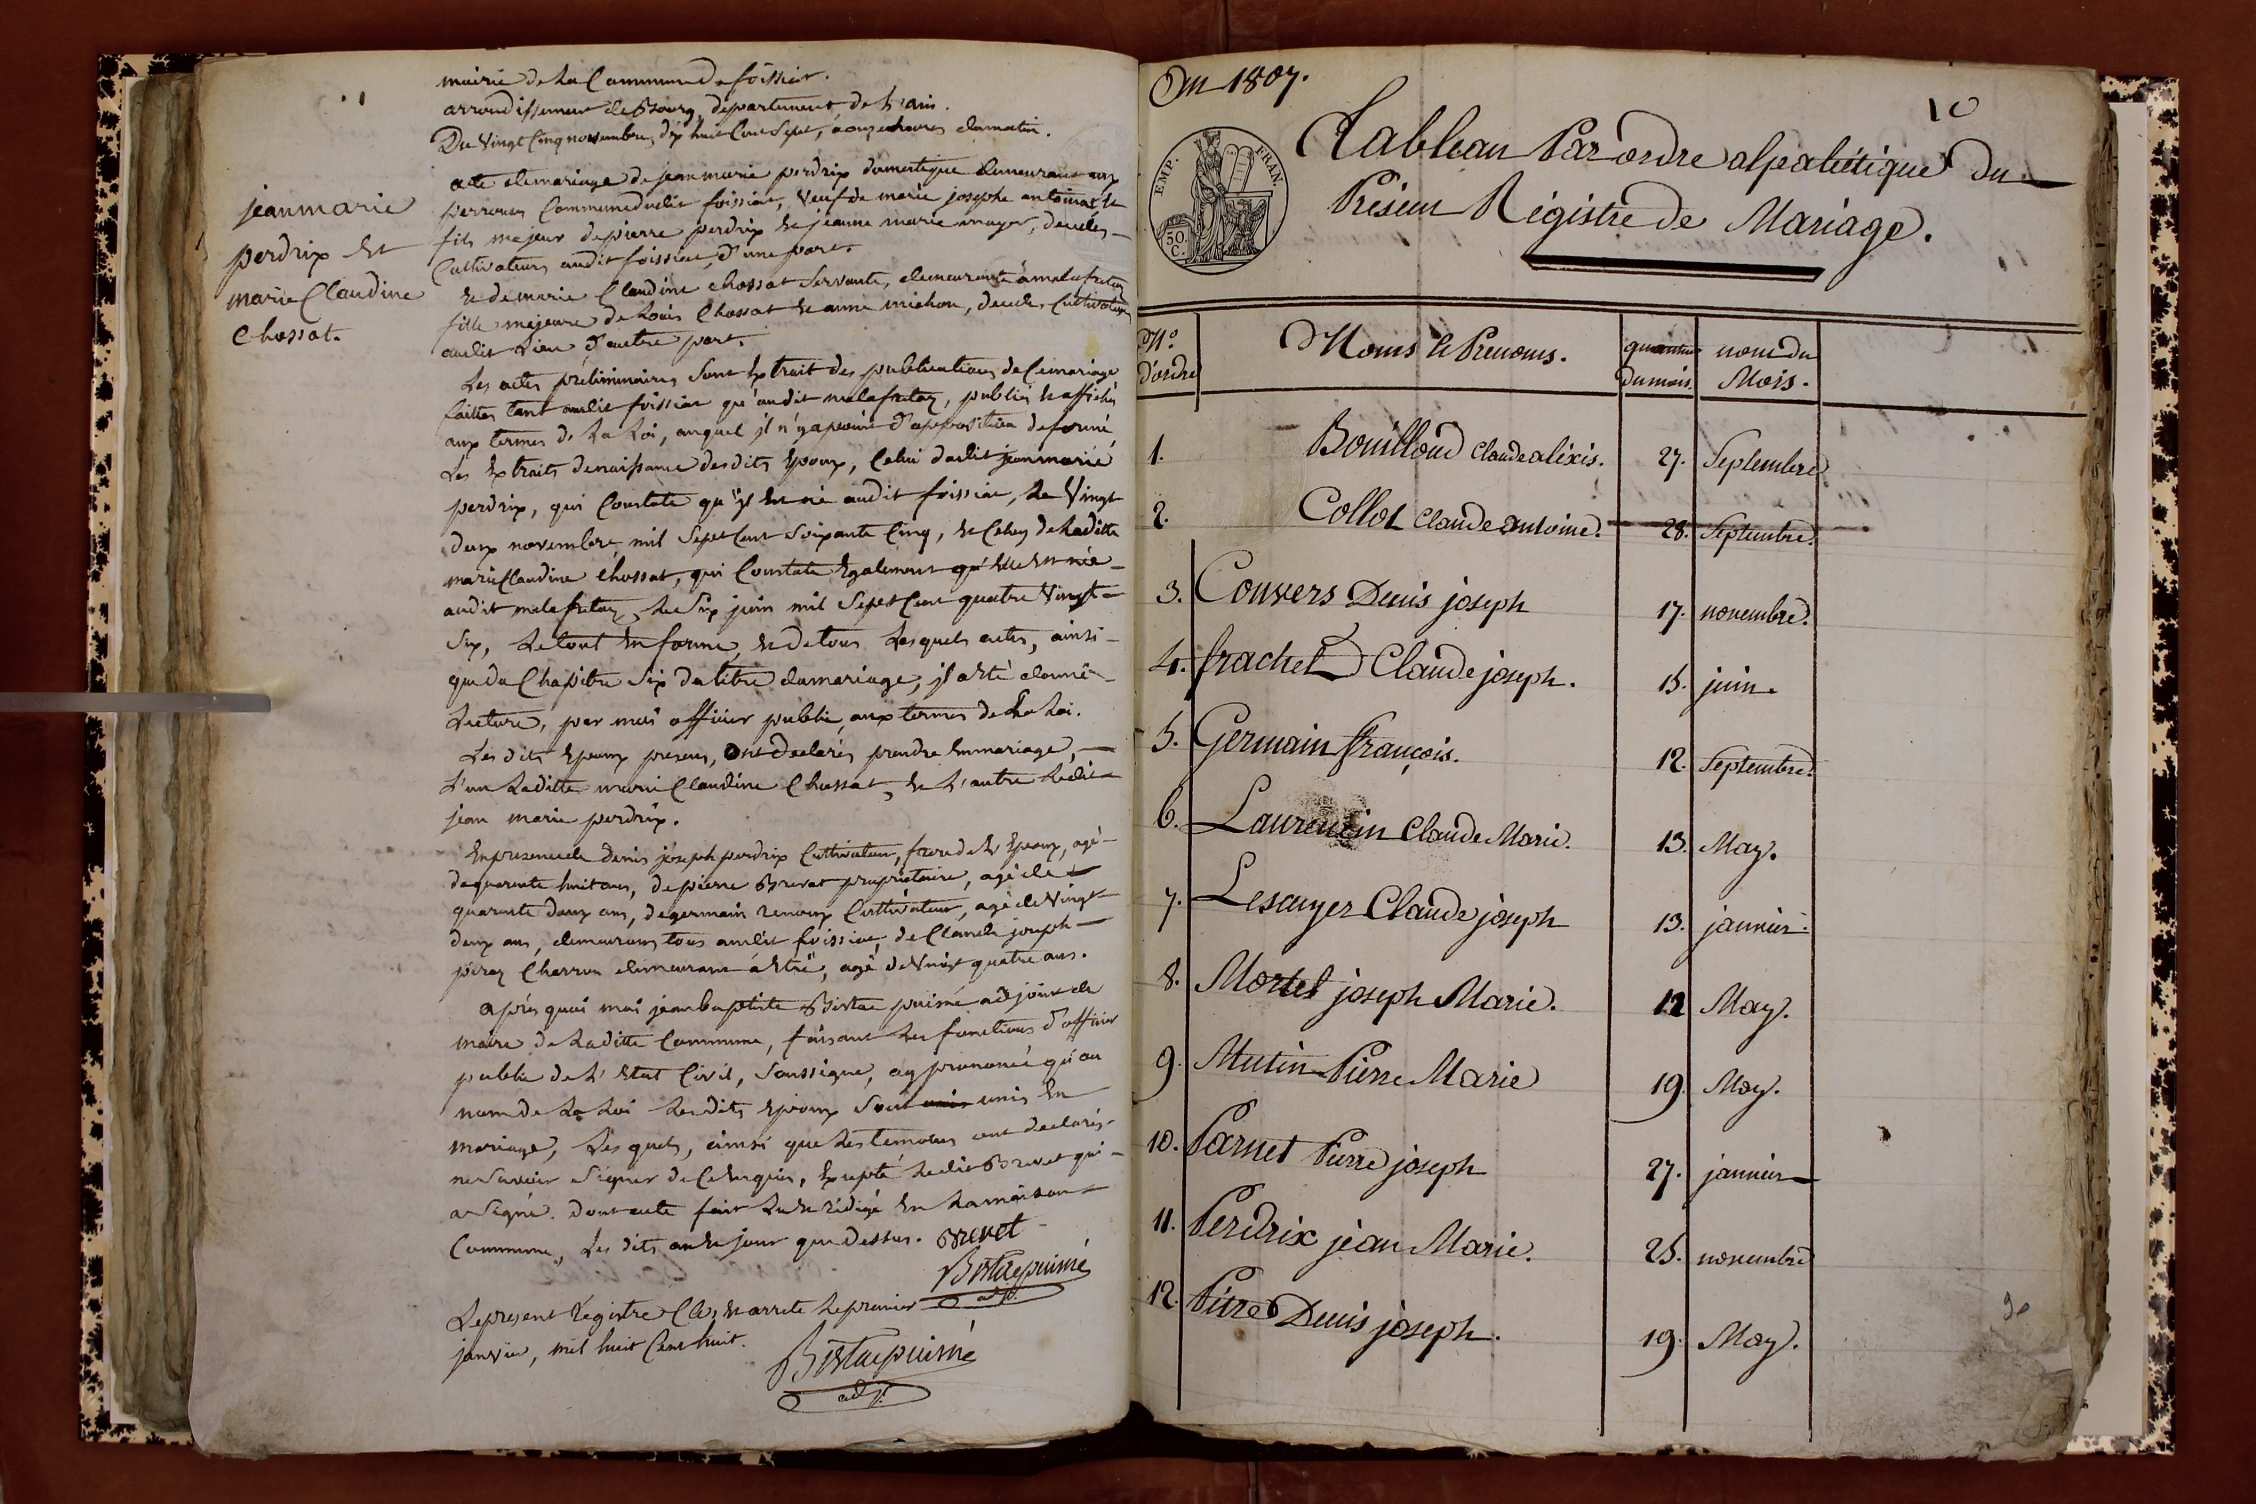 mairie de la Commune de foissiat.
arrondissement de Bourg, departement de l'ain.
Du vingt Cinq novembre, dix huit Cent Sept, a onze heures dumatin.
jean marie
perdrix et
marie Claudine
Chossat.
acte demariage de jean marie perdrix domestique demeurant aux
perroux Commune dudit foissiat, veuf de marie josephe antoinat et
fils majeur de pierre perdrix et jeanne marie mayor, decedes
Cultivateurs audit foissiat, d'une part.
et de marie Claudine chossat Servante, demeurante a malafretaz
fille majeure de Louis Chossat et anne michon, decedes, Cultivateurs
audit Lieu d'autre part.
Les actes préliminaires sont Extrait des publications de Cemariage
faittes tant audit foissiat qu'audit malafretaz, publiés et affichés
aux termes de La Loi, auquel jl n'ya point d'opposition deformé
Les Extraits denaissance desdits Epoux, Celui dudit jean marie
perdrix, qui Constate qu'jl est né audit foissiat, Le vingt
deux novembre mil Sept Cent Soixante Cinq, et Celuy de Laditte
marie Claudine chossat, qui Constate Egalement qu'elle est née
audit malafretaz, Le Six juin mil Sept Cent quatre vingt
Six, Le tout en forme, et de tous Lesquels actes, ainsi
que du Chapitre Six du titre dumariage, jl a eté donné
Lecture, par moi officier public, aux termes de La Loi.
Les dits Epoux presens, Ont declarés prendre Enmariage,
L'un Laditte marie Claudine Chossat, et L'autre Ledit
jean marie perdrix.
Enpresence de denis joseph perdrix Cultivateur, frere de L'Epoux, agé
dequarante huit ans, de pierre Brevet proprietaire, agé de
quarante deux ans, de germain renoux Cultivateur, agé de vingt
deux ans, demeurans tous audit foissiat, de Claude joseph
pirez Charron demeurant a Etré, agé de vingt quatre ans.
après quoi moi jean baptiste Bistac puiné adjoint de
maire de Laditte Commune, faisant Les fonctions d'officier
public de L'Etat Civil, Soussigné, ay prononcé qu'au
nom de La Loi Les dits Epoux Sont unis unis En
mariage, Les quels, ainsi que Les temoins ont declarés
ne Savoir Signer de Ce Enquis, Excepté Ledit Brevet qui
a Signé. dont acte fait Lu et rédigé En La maison
Commune, Les dits an et jour que dessus. Brevet
Bistac puiné
adjt.
Le present Régistre Clos et arreté Le premier
janvier, mil huit Cent huit.
Bistac puiné
adjt.
An 1807.
10
EMP. FRAN.
50. C.
Tableau Par ordre alpabétique du
Présent Régistre de Mariage.
No. d'ordre | Noms et Prenoms. | quantieme du mois. | nom du Mois.
1. Bouilloud Claude alixis. 27. Septembre
2. Collot Claude antoine. 28. Septembre.
3. Convers Denis joseph 17. novembre.
4. frachet Claude joseph. 15. juin.
5. Germain françois. 12. Septembre.
6. Laurencin Claude Marie. 13. May.
7. Lescuyer Claude joseph 13. janvier.
8. Mortel joseph Marie. 12 May.
9. Mutin Pierre Marie 19. May.
10. Parnet Pierre joseph 27. janvier
11. Perdrix jean Marie. 25. novembre
12. Pitre Denis joseph. 19. May.